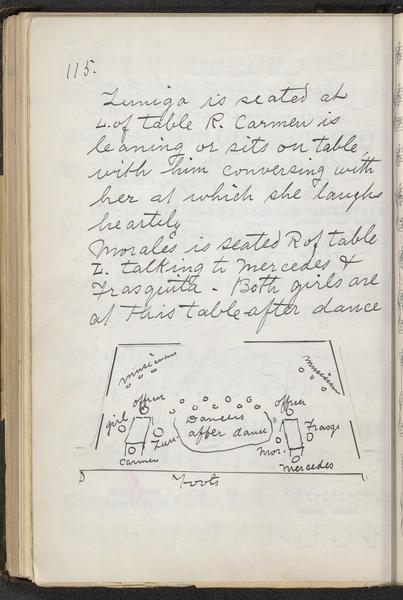 115.
Zuniga is seated at
L. of table R. Carmen is
leaning or sits on table,
with him conversing with
her at which she laughs
heartily
Morales is seated R of table
L. talking to Mercedes &
Frasquita - Both girls are
at this table after dance
musician
musician
officer
officer
girl
Dancers
after dance
Zun.
Carmen
Frasq
Mor.
Mercedes
Foots